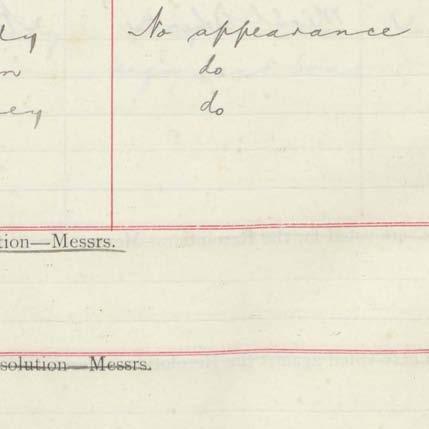 dy No appearance
n do
ey do
tion—Messrs.
solution—Messrs.